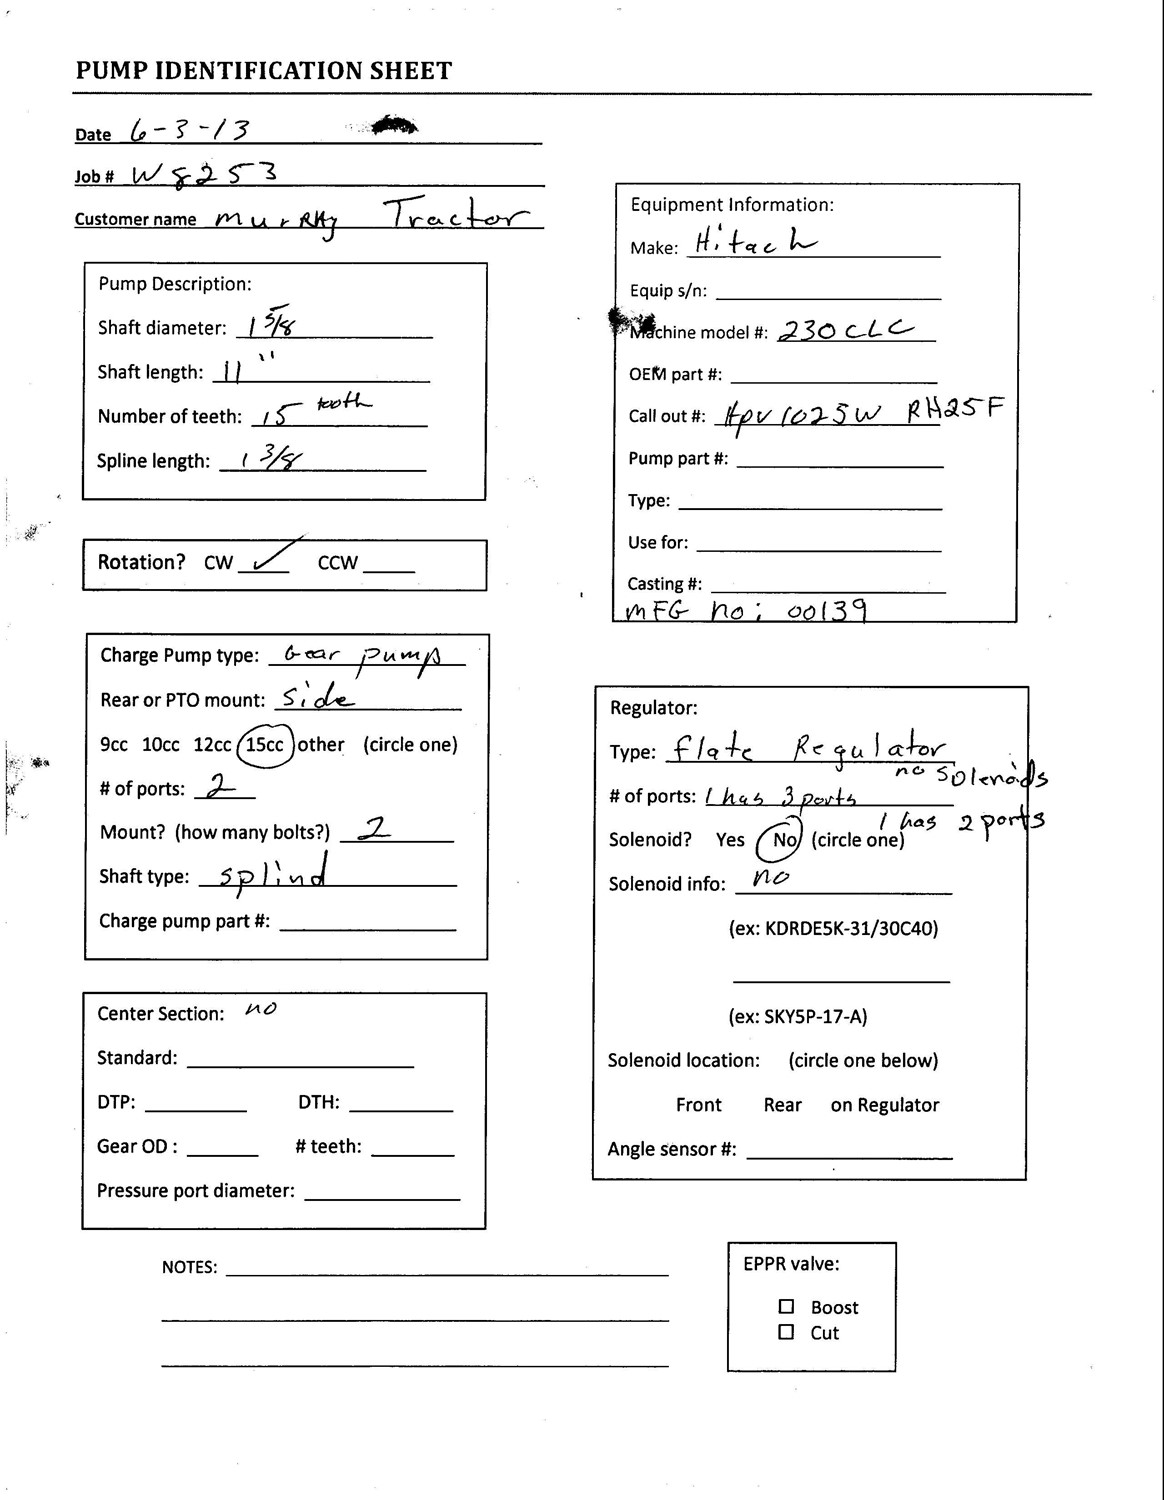 PUMP IDENTIFICATION SHEET
Date 6-3-13
Job # W8253
Customer name Murray Tractor
Pump Description:
Shaft diameter: 1 5/8
Shaft length: 11"
Number of teeth: 15 tooth
Spline length: 1 3/8
Rotation? CW ✓ CCW
Charge Pump type: Gear pump
Rear or PTO mount: Side
9cc 10cc 12cc 15cc other (circle one)
# of ports: 2
Mount? (how many bolts?) 2
Shaft type: splind
Charge pump part #:
Center Section: no
Standard:
DTP: DTH:
Gear OD : # teeth:
Pressure port diameter:
Equipment Information:
Make: Hitach
Equip s/n:
Machine model #: 230CLC
OEM part #:
Call out #: Hpv1025W RH25F
Pump part #:
Type:
Use for:
Casting #:
MFG no: 00139
Regulator:
Type: flate Regulator
no Solenoids
# of ports: 1 has 3 ports
1 has 2 ports
Solenoid? Yes No (circle one)
Solenoid info: no
(ex: KDRDE5K-31/30C40)
(ex: SKY5P-17-A)
Solenoid location: (circle one below)
Front Rear on Regulator
Angle sensor #:
NOTES:
EPPR valve:
☐ Boost
☐ Cut